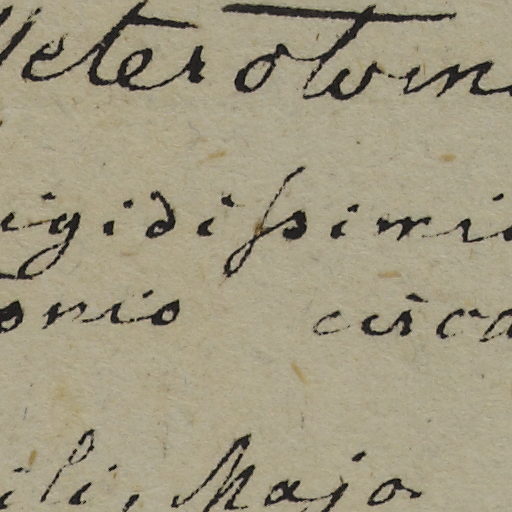 Heterotom
igidissimi
onio circa
ili, Majo